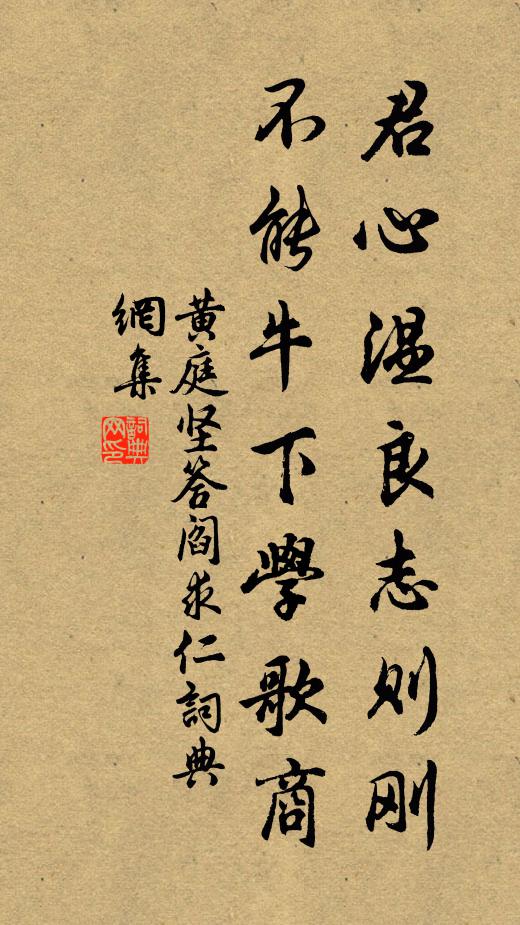 君心温良志则刚
不能牛下學歌商
黄庭坚答阎求仁詞典
網集
詞典
网印